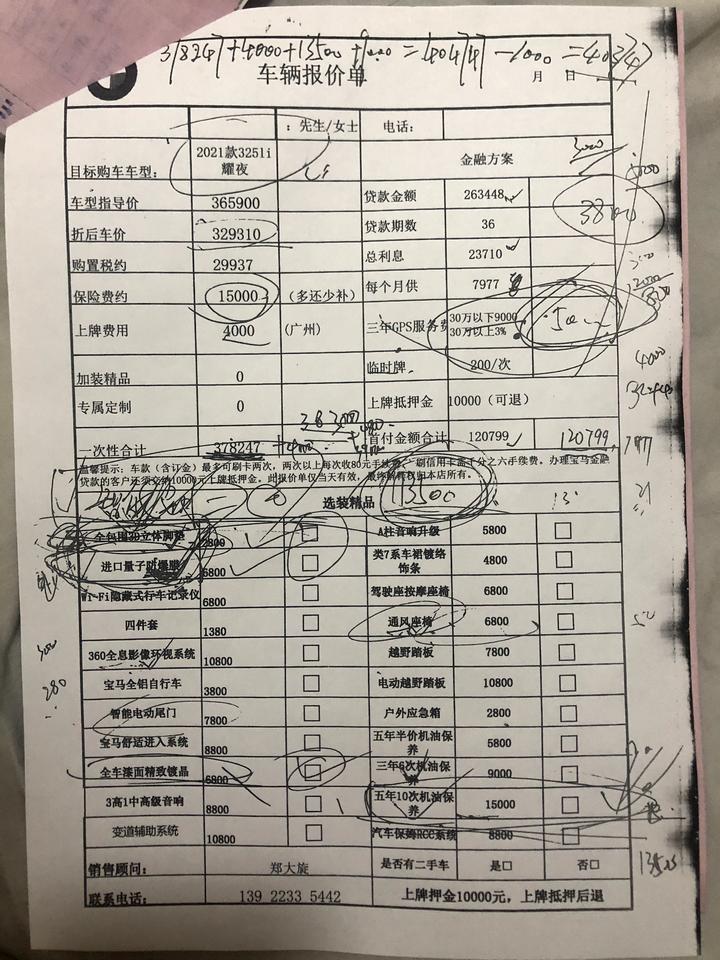 378247+4000+13500+9000=404747-1000=403747
车辆报价单 月 日
：先生/女士 电话：
目标购车车型： 2021款325li 耀夜 金融方案
车型指导价 365900 贷款金额 263448
折后车价 329310 贷款期数 36
购置税约 29937 总利息 23710
保险费约 15000 （多还少补） 每个月供 7977
上牌费用 4000 （广州） 三年GPS服务费 30万以下9000 30万以上3%
加装精品 0 临时牌 200/次
专属定制 0 上牌抵押金 10000（可退）
一次性合计 378247 首付金额合计 120799 120799
温馨提示：车款（含订金）最多可刷卡两次，两次以上每次收80元手续费，刷信用卡需千分之六手续费。办理宝马金融
贷款的客户还须交纳10000元上牌抵押金。此报价单仅当天有效，最终解释权归本店所有。
13500
选装精品
全包围3D立体脚垫 2800 A柱音响升级 5800
进口量子防爆膜 6800 类7系车裙镀络饰条 4800
Wi-Fi隐藏式行车记录仪 6800 驾驶座按摩座椅 6800
四件套 1380 通风座椅 6800
360全息影像环视系统 10800 越野踏板 7800
宝马全铝自行车 3800 电动越野踏板 10800
智能电动尾门 7800 户外应急箱 2800
宝马舒适进入系统 8800 五年半价机油保养 5800
全车漆面精致镀晶 6800 三年6次机油保养 9000
3高1中高级音响 8800 五年10次机油保养 15000
变道辅助系统 10800 汽车保姆RCC系统 8800
销售顾问： 郑大旋 是否有二手车 是□ 否□
联系电话： 139 2233 5442 上牌押金10000元，上牌抵押后退